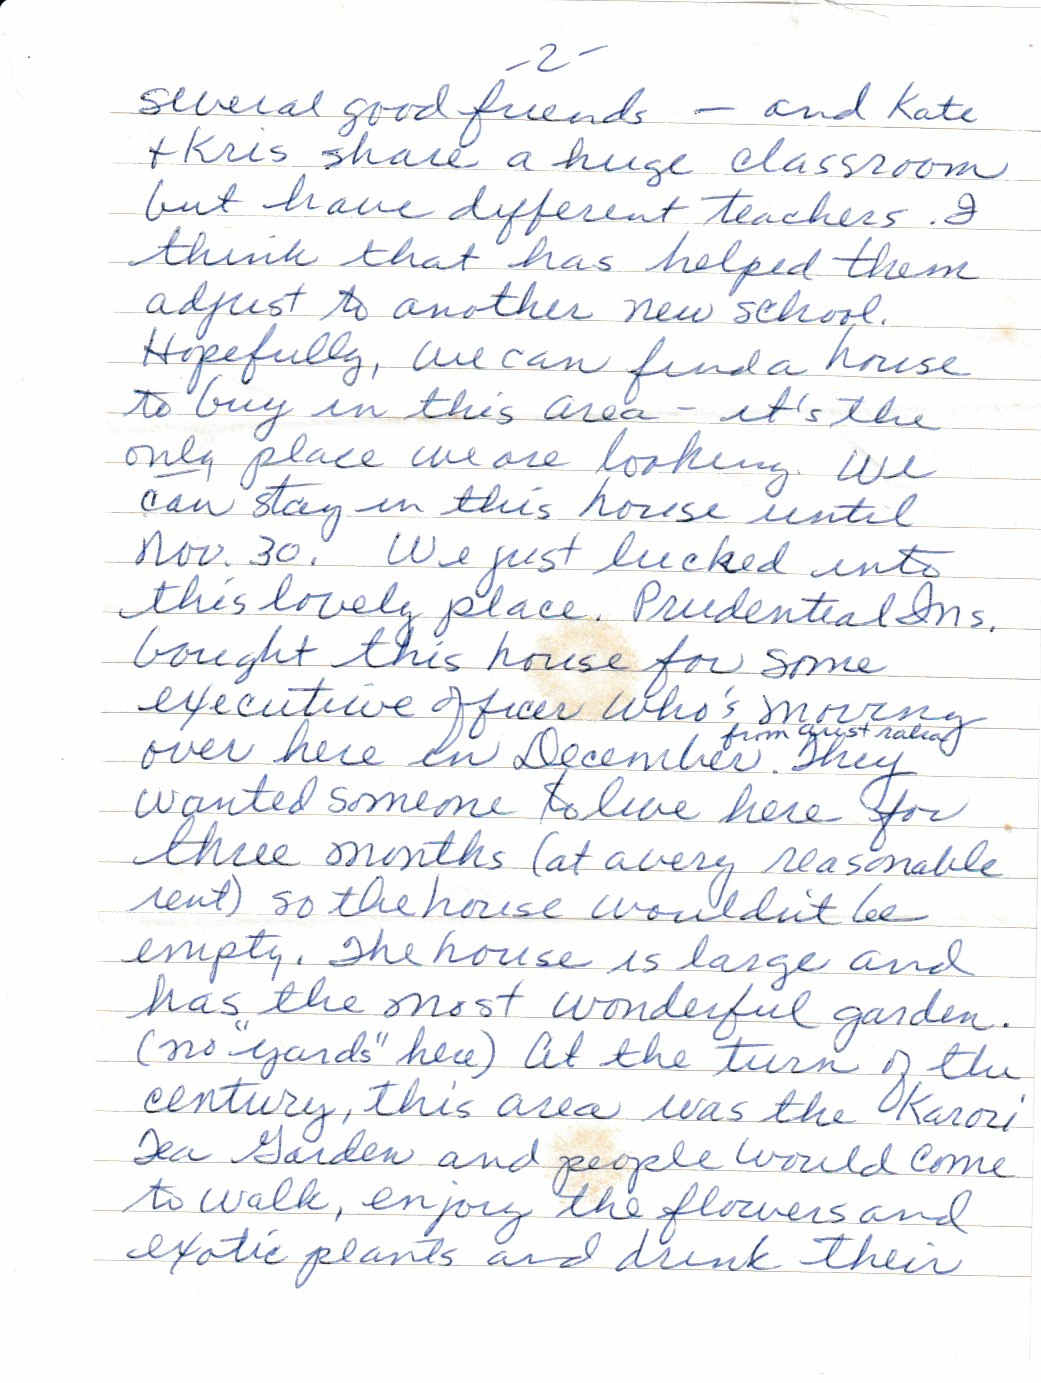 -2-
several good friends - and Kate
+ Kris share a huge classroom
but have different teachers. I
think that has helped them
adjust to another new school.
Hopefully, we can find a house
to buy in this area - it's the
only place we are looking. We
can stay in this house until
Nov. 30. We just lucked into
this lovely place. Prudential Ins.
bought this house for some
executive officer who's moving
from Australia
over here in December. They
wanted someone to live here for
three months (at a very reasonable
rent) so the house wouldn't be
empty. The house is large and
has the most wonderful garden.
(no "yards" here) At the turn of the
century, this area was the Karori
Tea Garden and people would come
to walk, enjoy the flowers and
exotic plants and drink their